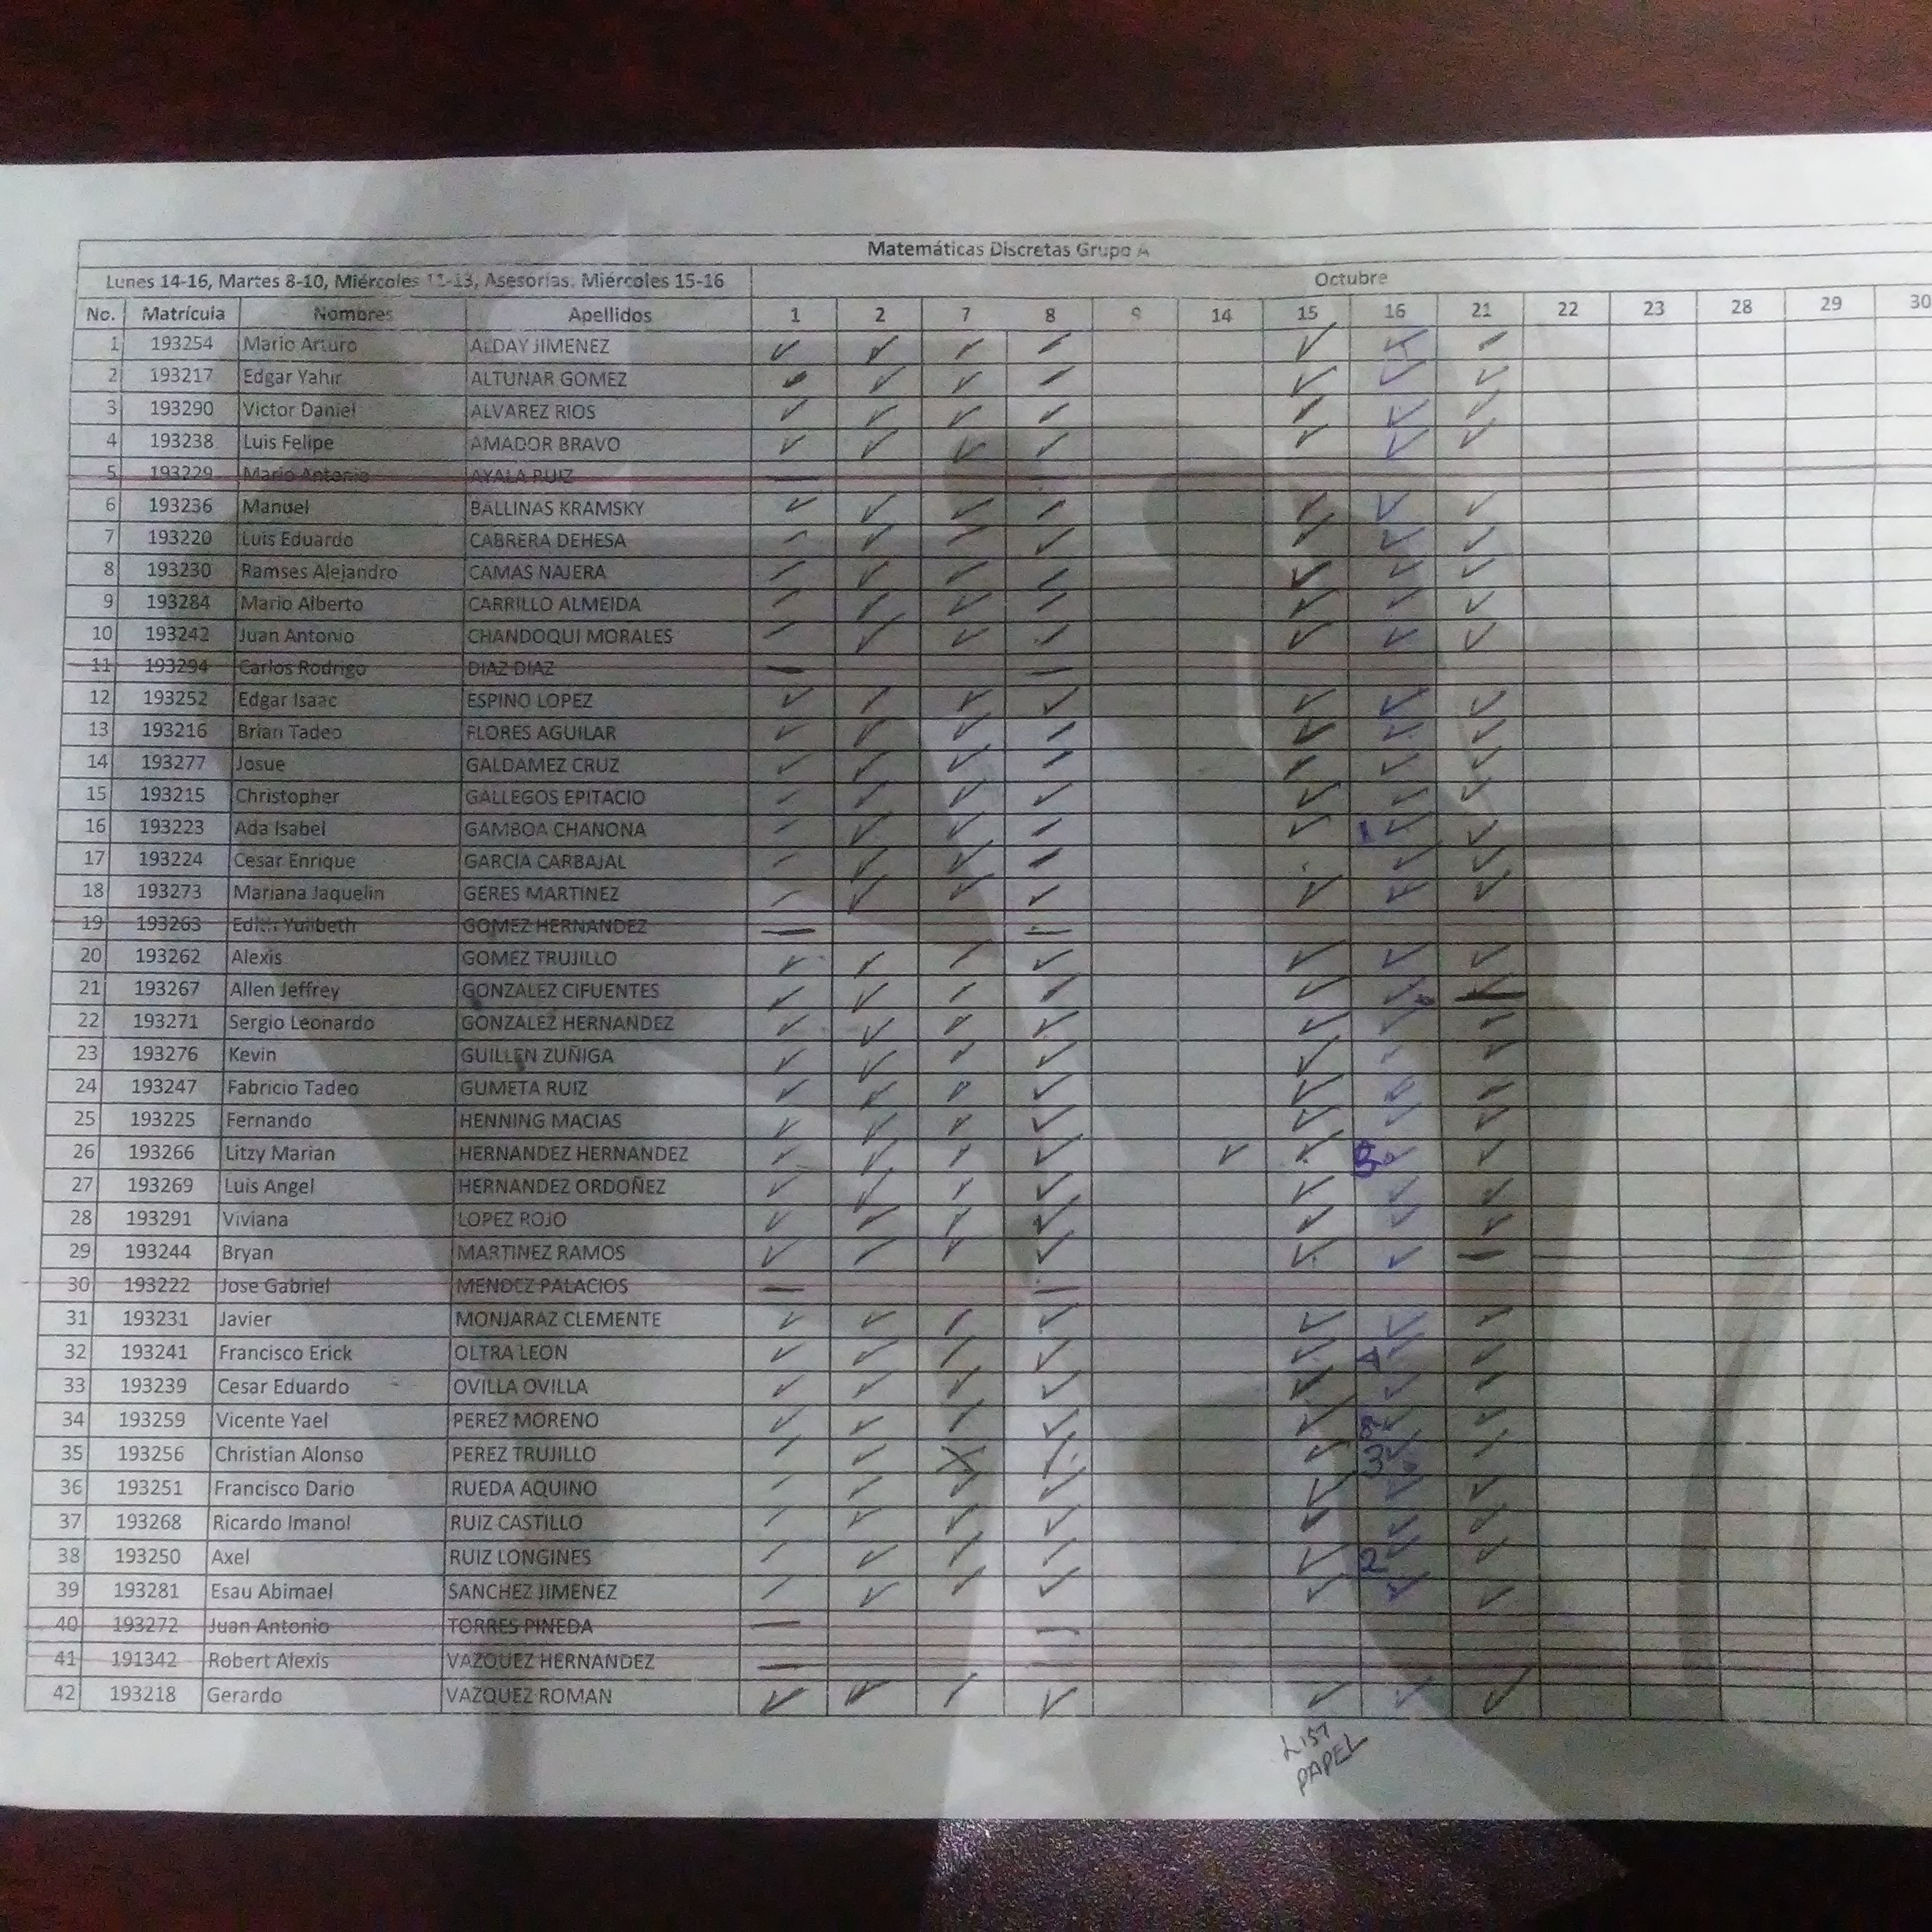 Matemáticas Discretas Grupo A
Lunes 14-16, Martes 8-10, Miércoles 11-13, Asesorias: Miércoles 15-16 Octubre
No. Matrícula Nombres Apellidos 1 2 7 8 9 14 15 16 21 22 23 28 29 30
1 193254 Mario Arturo ALDAY JIMENEZ
2 193217 Edgar Yahir ALTUNAR GOMEZ
3 193290 Victor Daniel ALVAREZ RIOS
4 193238 Luis Felipe AMADOR BRAVO
5 193229 Mario Antonio AYALA RUIZ
6 193236 Manuel BALLINAS KRAMSKY
7 193220 Luis Eduardo CABRERA DEHESA
8 193230 Ramses Alejandro CAMAS NAJERA
9 193284 Mario Alberto CARRILLO ALMEIDA
10 193242 Juan Antonio CHANDOQUI MORALES
11 193294 Carlos Rodrigo DIAZ DIAZ
12 193252 Edgar Isaac ESPINO LOPEZ
13 193216 Brian Tadeo FLORES AGUILAR
14 193277 Josue GALDAMEZ CRUZ
15 193215 Christopher GALLEGOS EPITACIO
16 193223 Ada Isabel GAMBOA CHANONA 1
17 193224 Cesar Enrique GARCIA CARBAJAL
18 193273 Mariana Jaquelin GERES MARTINEZ
19 193263 Yuribeth GOMEZ HERNANDEZ
20 193262 Alexis GOMEZ TRUJILLO
21 193267 Allen Jeffrey GONZALEZ CIFUENTES
22 193271 Sergio Leonardo GONZALEZ HERNANDEZ
23 193276 Kevin GUILLEN ZUÑIGA
24 193247 Fabricio Tadeo GUMETA RUIZ
25 193225 Fernando HENNING MACIAS
26 193266 Litzy Marian HERNANDEZ HERNANDEZ
27 193269 Luis Angel HERNANDEZ ORDOÑEZ
28 193291 Viviana LOPEZ ROJO
29 193244 Bryan MARTINEZ RAMOS
30 193222 Jose Gabriel MENDEZ PALACIOS
31 193231 Javier MONJARAZ CLEMENTE
32 193241 Francisco Erick OLTRA LEON 4
33 193239 Cesar Eduardo OVILLA OVILLA
34 193259 Vicente Yael PEREZ MORENO
35 193256 Christian Alonso PEREZ TRUJILLO 3
36 193251 Francisco Dario RUEDA AQUINO
37 193268 Ricardo Imanol RUIZ CASTILLO
38 193250 Axel RUIZ LONGINES 2
39 193281 Esau Abimael SANCHEZ JIMENEZ
40 193272 Juan Antonio TORRES PINEDA
41 191342 Robert Alexis VAZQUEZ HERNANDEZ
42 193218 Gerardo VAZQUEZ ROMAN
PAPEL